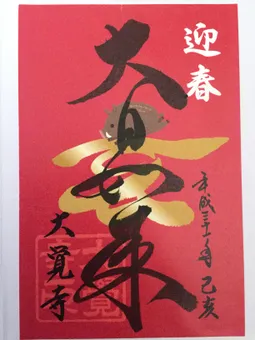 迎春
平成三十一年 己亥
大日如来
大覺寺